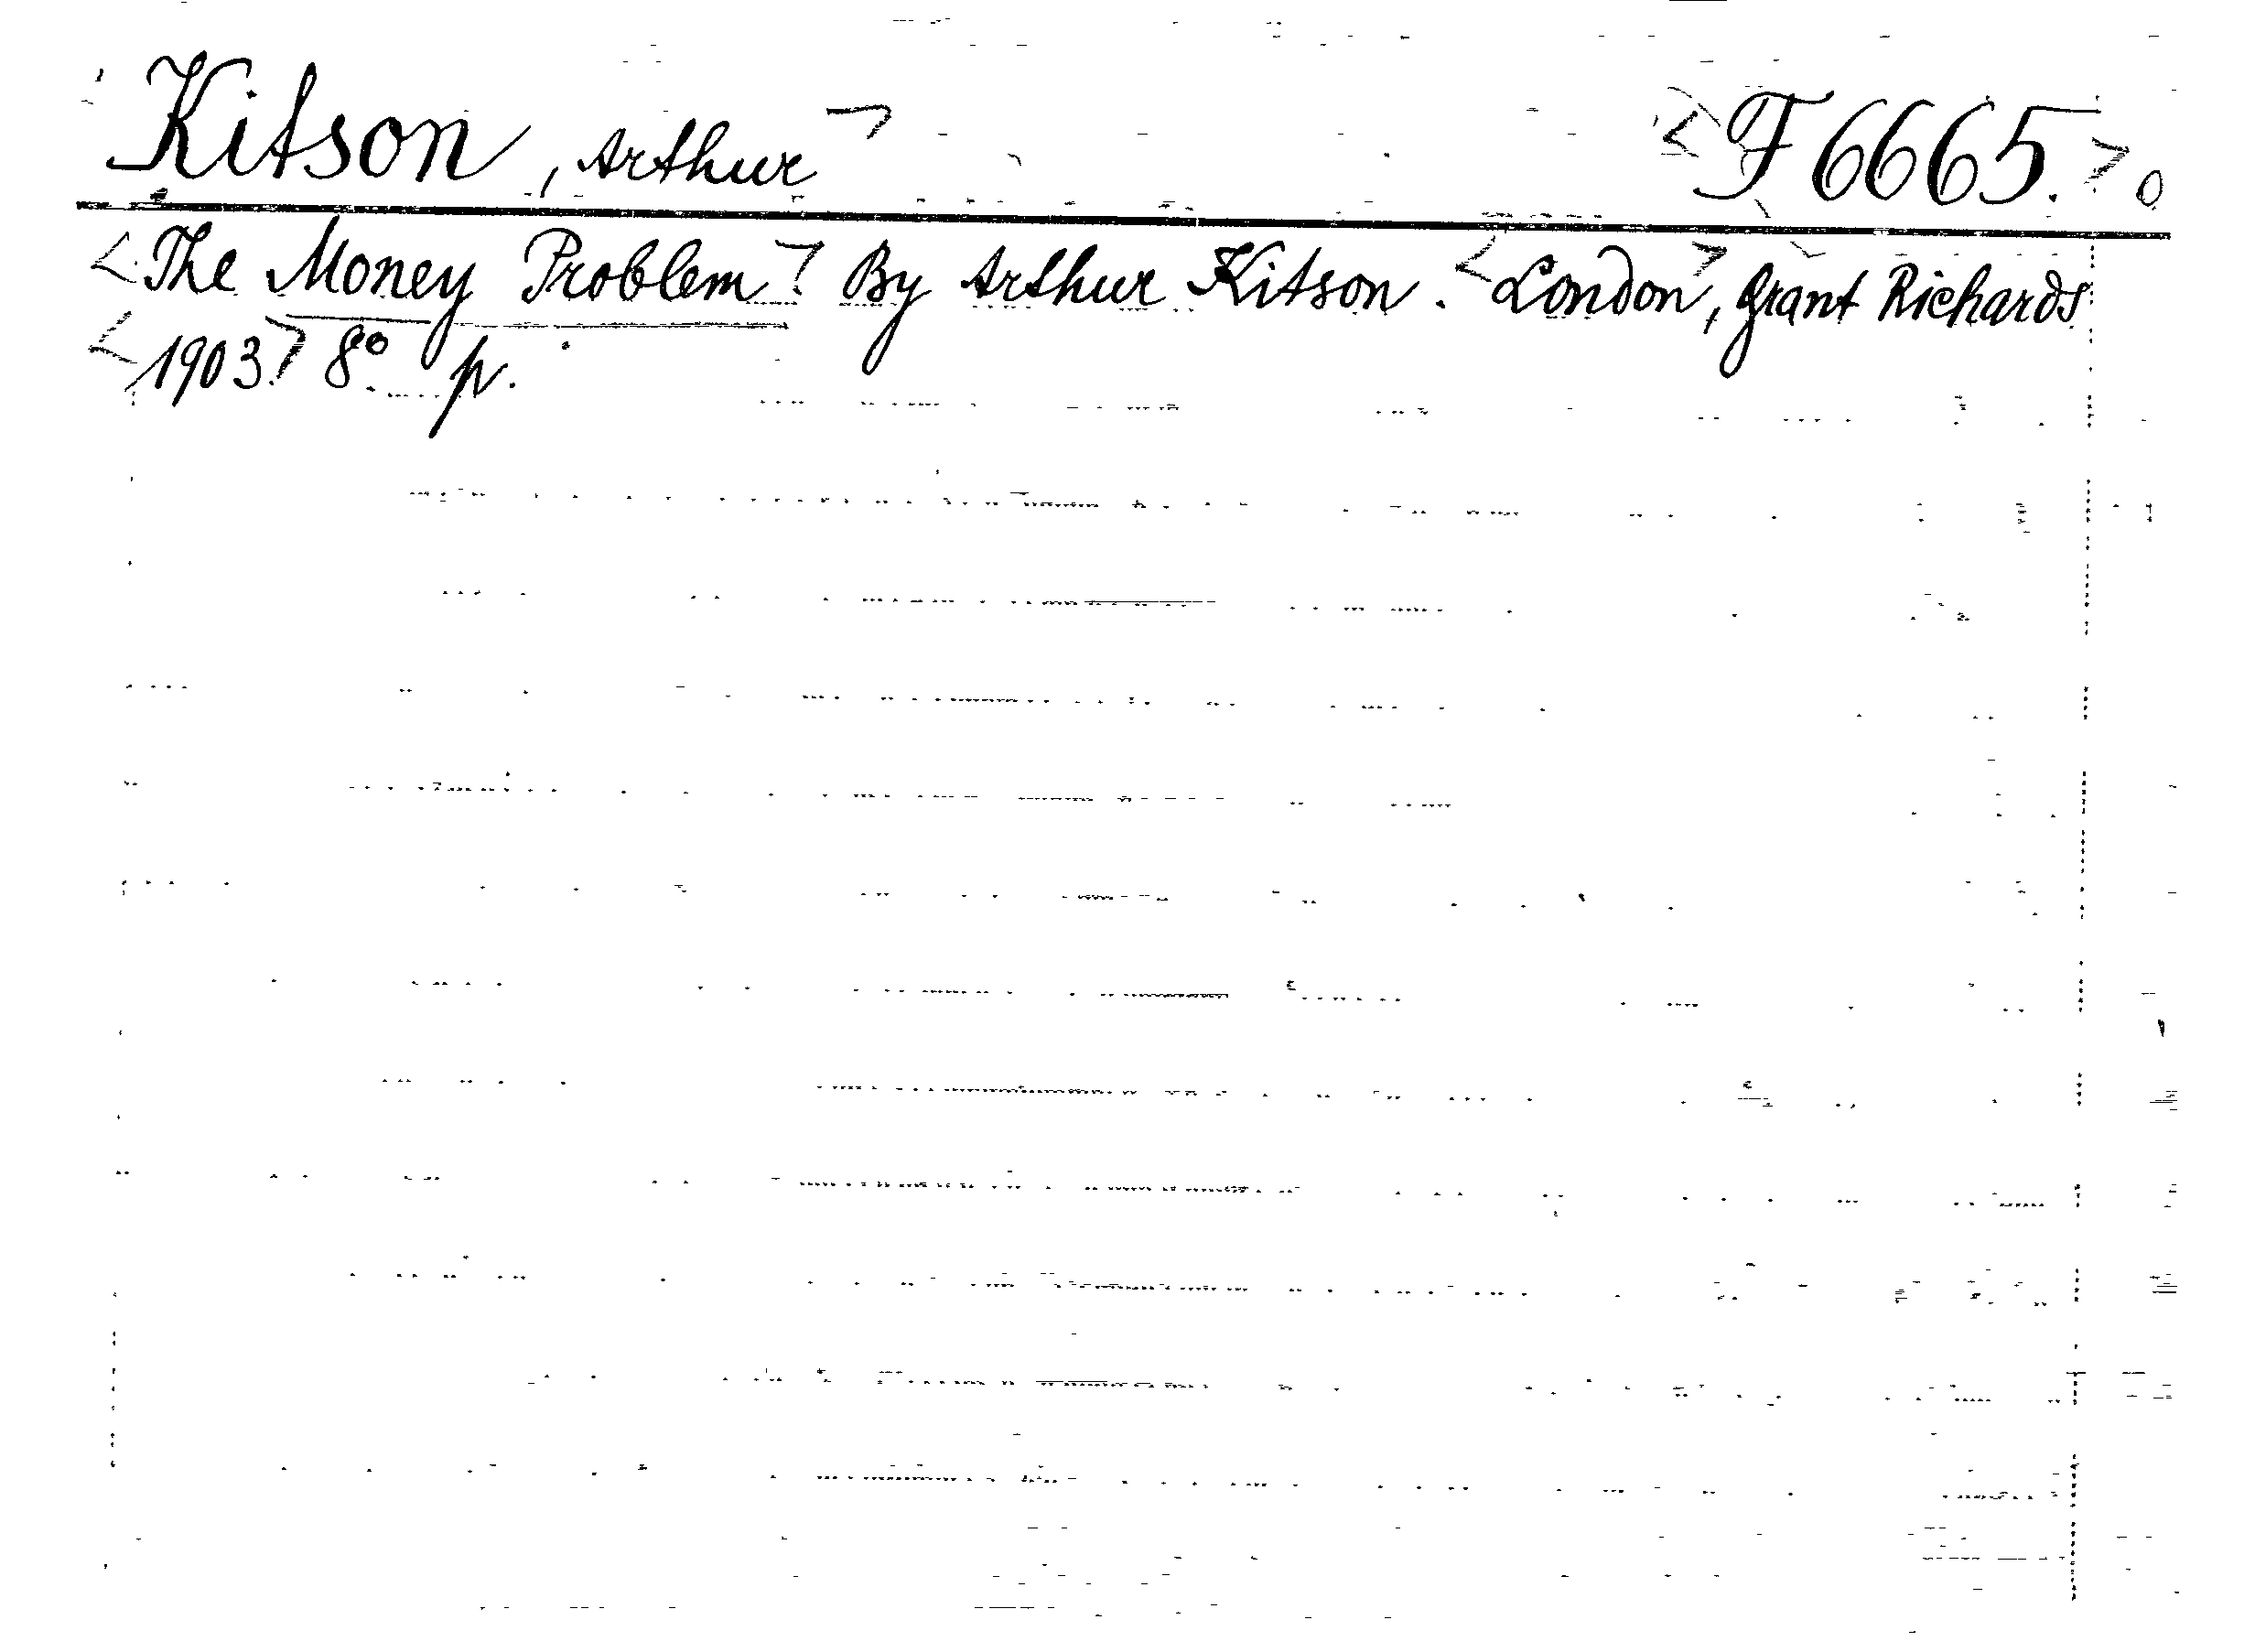 Kitson, Arthur> <F 6665.> 0
<The Money Problem>. By Arthur Kitson. <London>, Grant Richards
<1903.> 8° p.